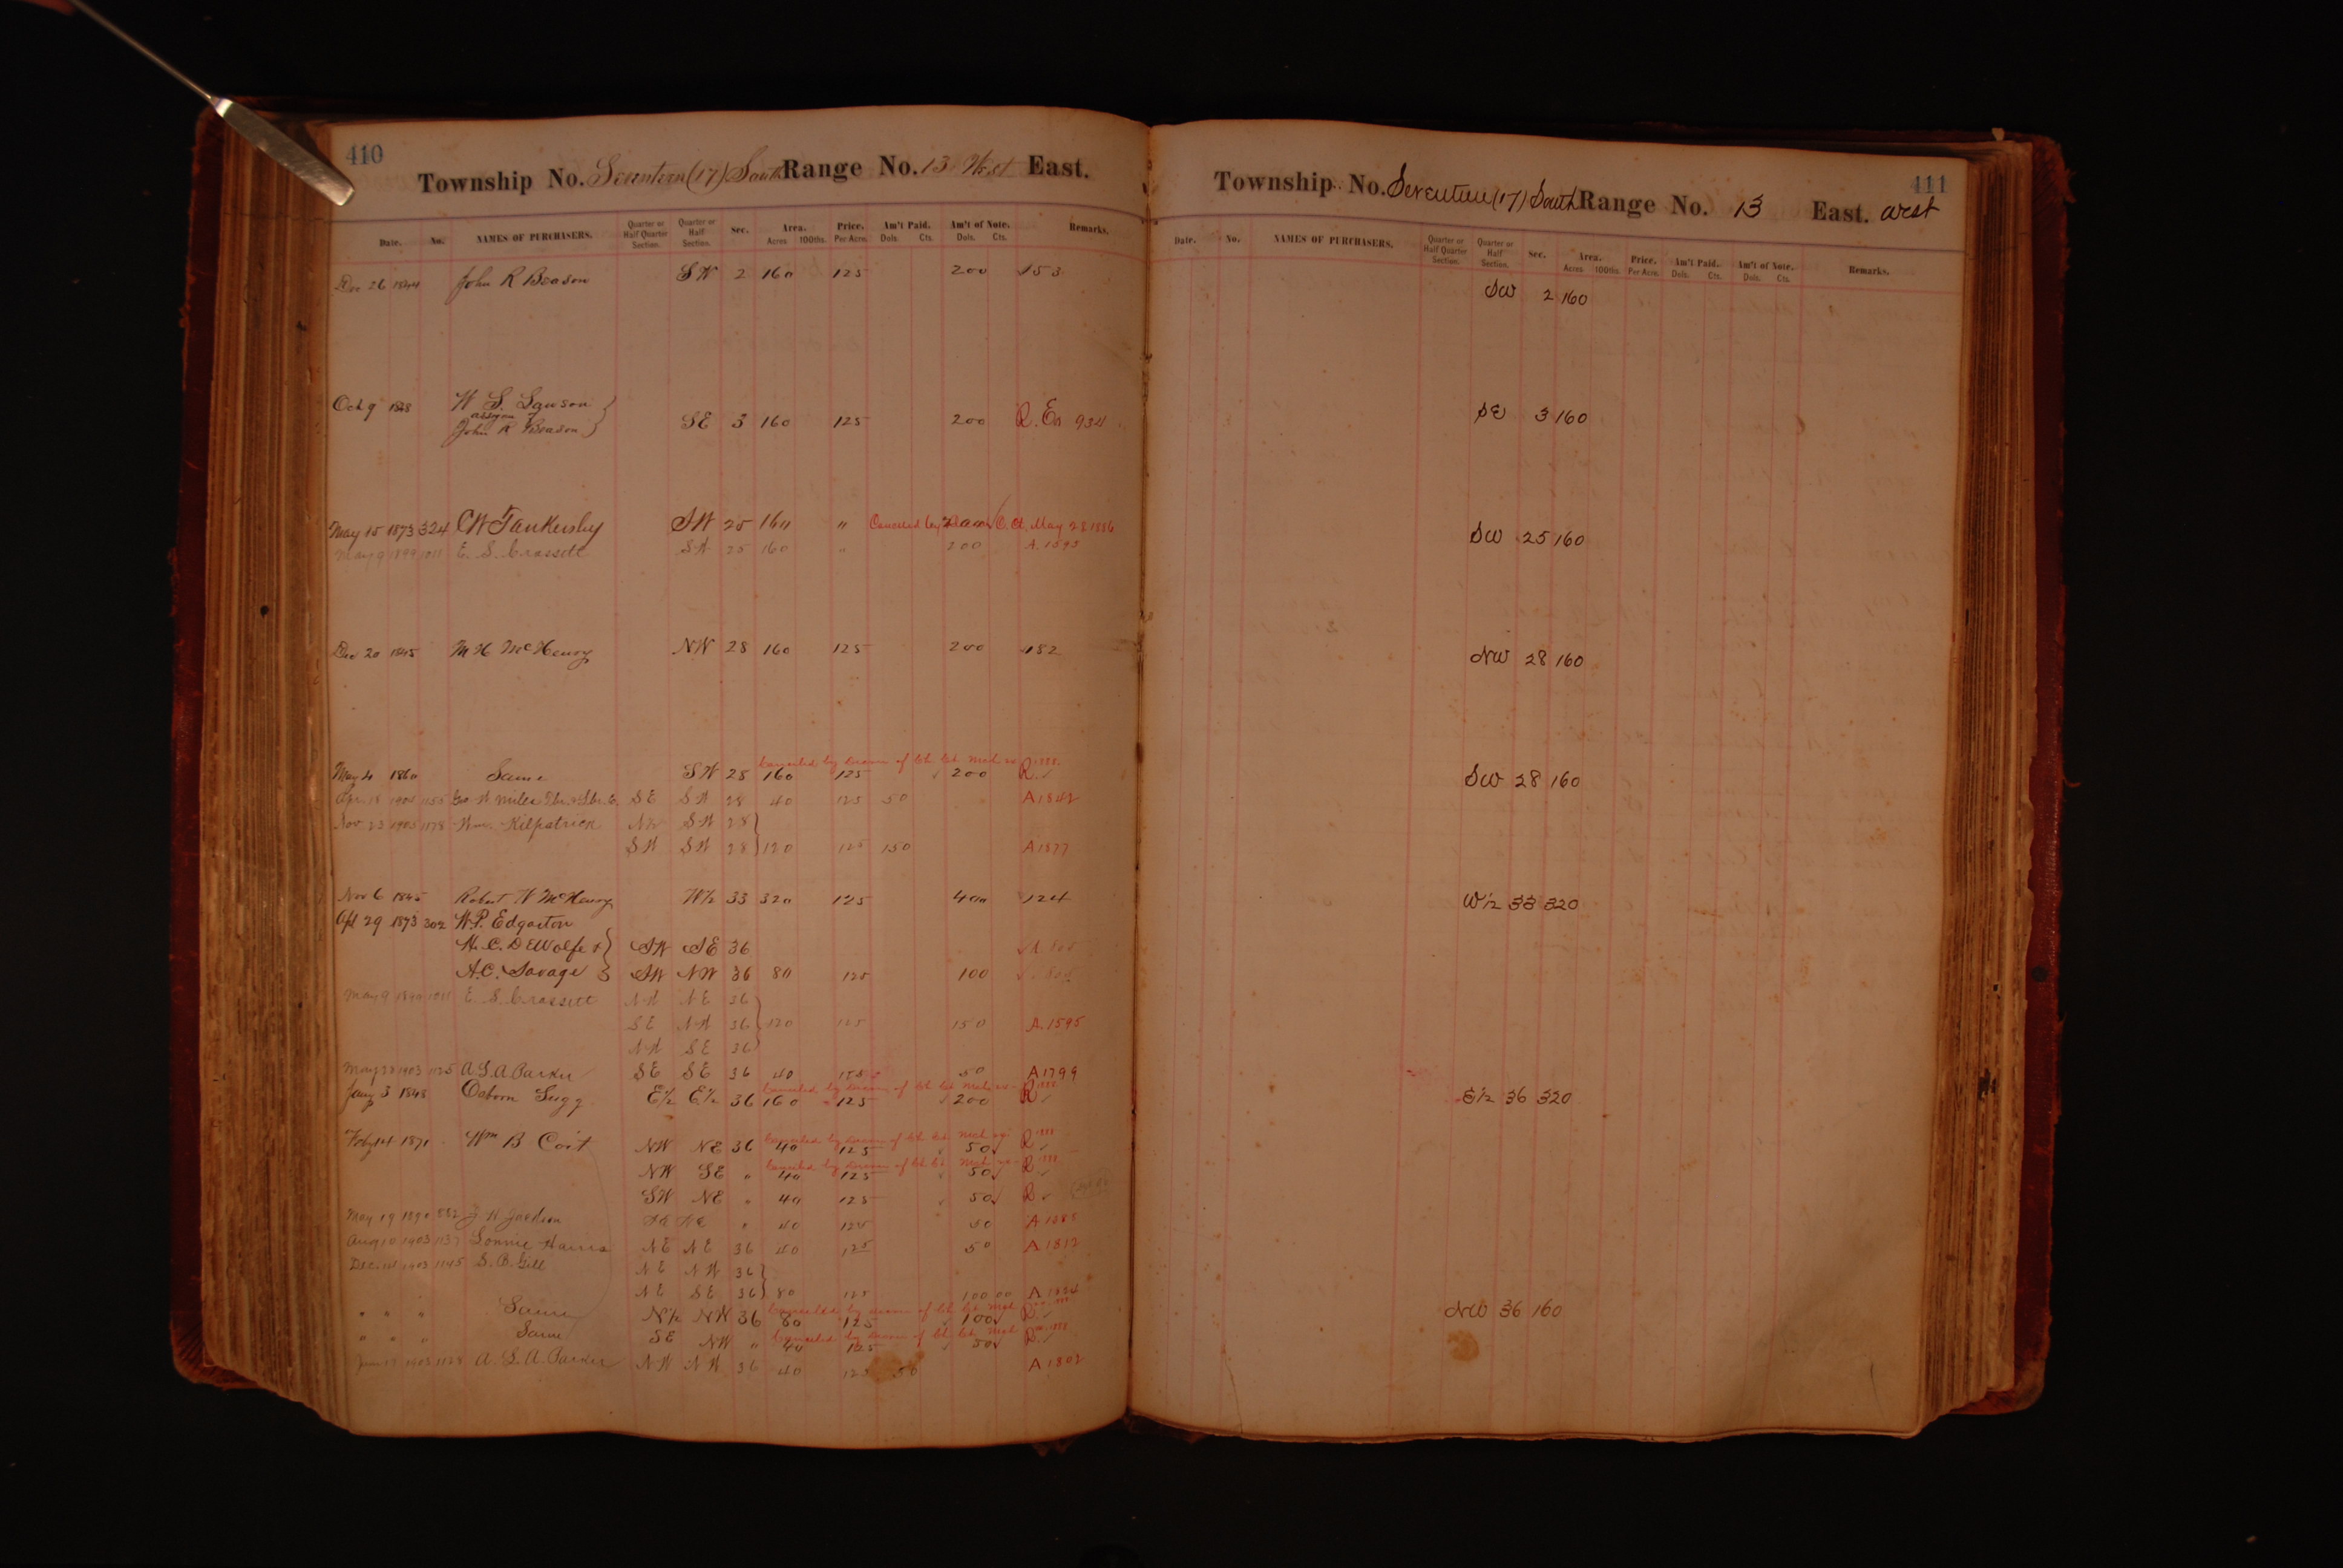 410
Township No. Seventeen (17) South Range No. 13 West East.
Date. No. NAMES OF PURCHASERS. Quarter or Half Quarter Section. Quarter or Half Section. Sec. Area. Acres 100ths. Price. Per Acre. Am't Paid. Dols. Cts. Am't of Note. Dols. Cts. Remarks.
Dec 26 1844 John R Beason SW 2 160 125 200 153
Oct 9 1848 W S. Lawson
assignee of
John R Beason SE 3 160 125 200 R. En 934
May 15 1873 324 CW Tankersley SW 25 160 " Canceled by 200 May 28 1886
May 9 1899 1011 E. S. Crassett SW 25 160 " 200 A. 1595
Dec 20 1845 M H McHenry NW 28 160 125 200 182
Canceled by decree of Ch Ct
May 4 1860 Same SW 28 160 125 200 R.
Apr 18 1904 1155 Geo W Miles SE SW 28 40 125 50 A 1842
Nov 23 1905 1178 Wm. Kilpatrick NW SW 28
SW SW 28 120 125 150 A 1877
Nov 6 1845 Robert W McHenry W½ 33 320 125 400 124
Apl 29 1873 302 W.P. Edgarton
H. C. DeWolfe & SW SE 36
A.C. Savage SW NW 36 80 125 100
May 9 1011 E. S. Crassett NW NE 36
SE NW 36 120 125 150 A. 1595
NW SE 36
May 28 1903 1125 A S. A. Parker SE SE 36 40 125 50 A 1799
Canceled by decree of Ch Ct
Jany 3 1848 Osborn Sugg E½ E½ 36 160 125 200 R
Canceled by decree of Ch Ct
Feby 14 1871 Wm B Coit NW NE 36 40 125 50 R
Canceled by decree of Ch Ct
NW SE " 40 125 50 R
SW NE " 40 125 50 R
May 19 1890 882 J. W Jackson NE " 40 125 50 A 1385
Aug 10 1903 1137 Lonnie Harris NE NE 36 40 125 50 A 1812
Dec. 14 1903 1145 S. B. Gill NE NW 36
NE SE 36 80 125 100 00 A
Canceled by decree of Ch Ct
" " " Same N½ NW 36 80 125 100 R
Canceled by decree of Ch Ct
" " " Same SE NW " 40 125 50 R
1903 1128 A. S. A. Parker NW NW 36 40 125 50 A 1802
411
Township No. Seventeen (17) South Range No. 13 East. West
Date. No. NAMES OF PURCHASERS. Quarter or Half Quarter Section. Quarter or Half Section. Sec. Area. Acres 100ths. Price. Per Acre. Am't Paid. Dols. Cts. Am't of Note. Dols. Cts. Remarks.
SW 2 160
SE 3 160
SW 25 160
NW 28 160
SW 28 160
W½ 33 320
E½ 36 320
NW 36 160